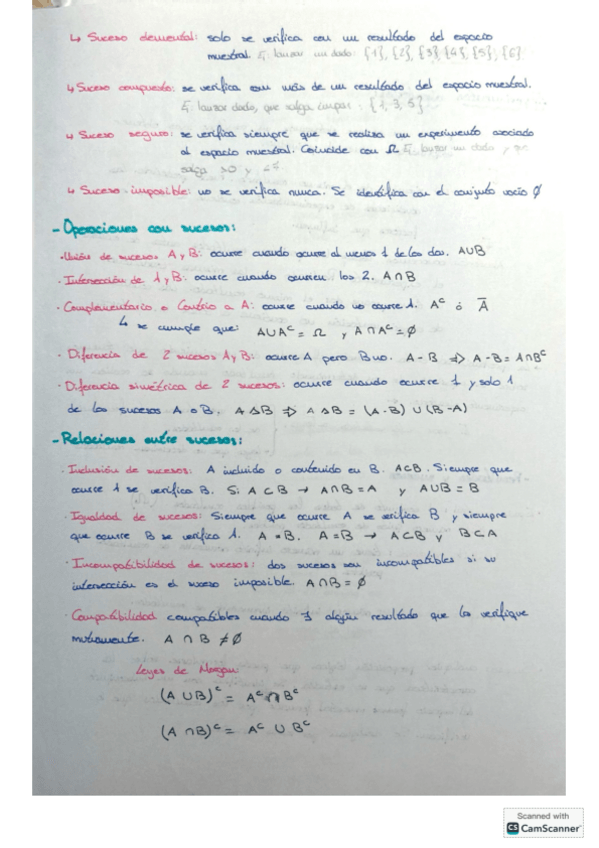 ↳ Suceso elemental: solo se verifica con un resultado del espacio
muestral. Ej, lanzar un dado: {1}, {2}, {3}, {4}, {5}, {6}
↳ Suceso compuesto: se verifica con más de un resultado del espacio muestral.
Ej, lanzar dado, que salga impar: {1, 3, 5}
↳ Suceso seguro: se verifica siempre que se realiza un experimento asociado
al espacio muestral. Coincide con Ω Ej, lanzar un dado y que
salga >0 y
↳ Suceso imposible: no se verifica nunca. Se identifica con el conjunto vacío ∅
- Operaciones con sucesos:
· Unión de sucesos A y B: ocurre cuando ocurre al menos 1 de los dos. A∪B
· Intersección de A y B: ocurre cuando ocurren los 2. A∩B
· Complementario o Contrario a A: ocurre cuando no ocurre A. Aᶜ ó A̅
↳ se cumple que: A∪Aᶜ = Ω y A∩Aᶜ = ∅
· Diferencia de 2 sucesos A y B: ocurre A pero B no. A - B ⇒ A - B = A∩Bᶜ
· Diferencia simétrica de 2 sucesos: ocurre cuando ocurre 1 y solo 1
de los sucesos A o B. A Δ B ⇒ A Δ B = (A - B) ∪ (B - A)
- Relaciones entre sucesos:
· Inclusión de sucesos: A incluido o contenido en B. A⊂B. Siempre que
ocurre A se verifica B. Si A ⊂ B → A∩B = A y A∪B = B
· Igualdad de sucesos: Siempre que ocurre A se verifica B y siempre
que ocurre B se verifica A. A = B. A = B → A⊂B y B⊂A
· Incompatibilidad de sucesos: dos sucesos son incompatibles si su
intersección es el suceso imposible A∩B = ∅
· Compatibilidad compatibles cuando ∃ algún resultado que los verifique
mutuamente. A ∩ B ≠ ∅
Leyes de Morgan:
(A ∪ B)ᶜ = Aᶜ ∩ Bᶜ
(A ∩ B)ᶜ = Aᶜ ∪ Bᶜ
Scanned with
CS CamScanner